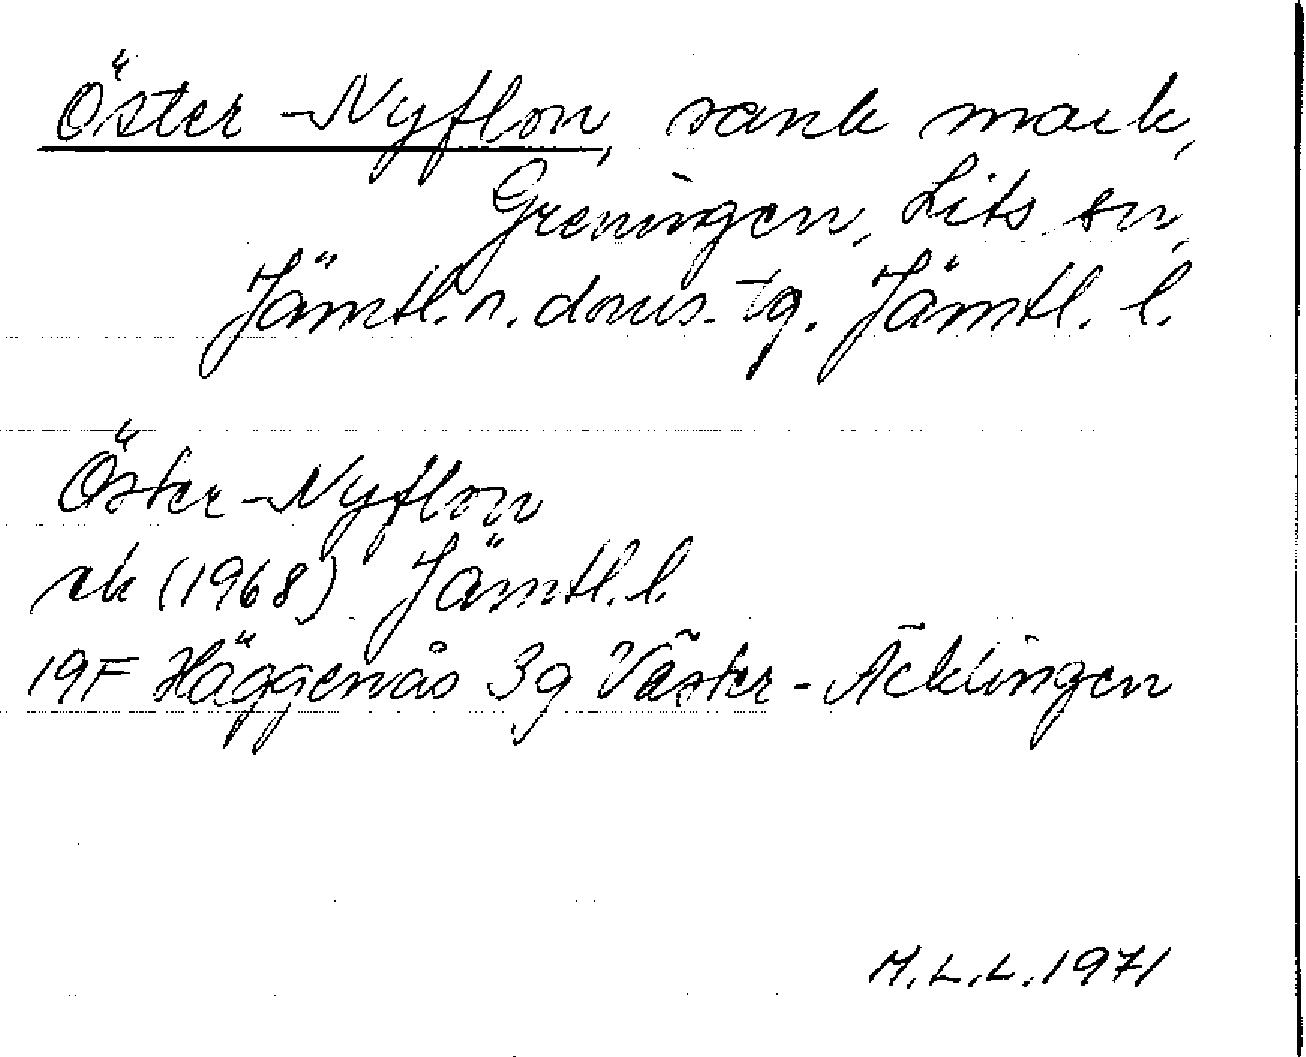 Öster-Nyflon, sank mark,
Greningen, Lits sn,
Jämtl. n. doms. tg. Jämtl. l.
Öster-Nyflon
rk (1968) Jämtl. l.
19F Häggenås 3g Väster-Äcklingen
M.L.L. 1971